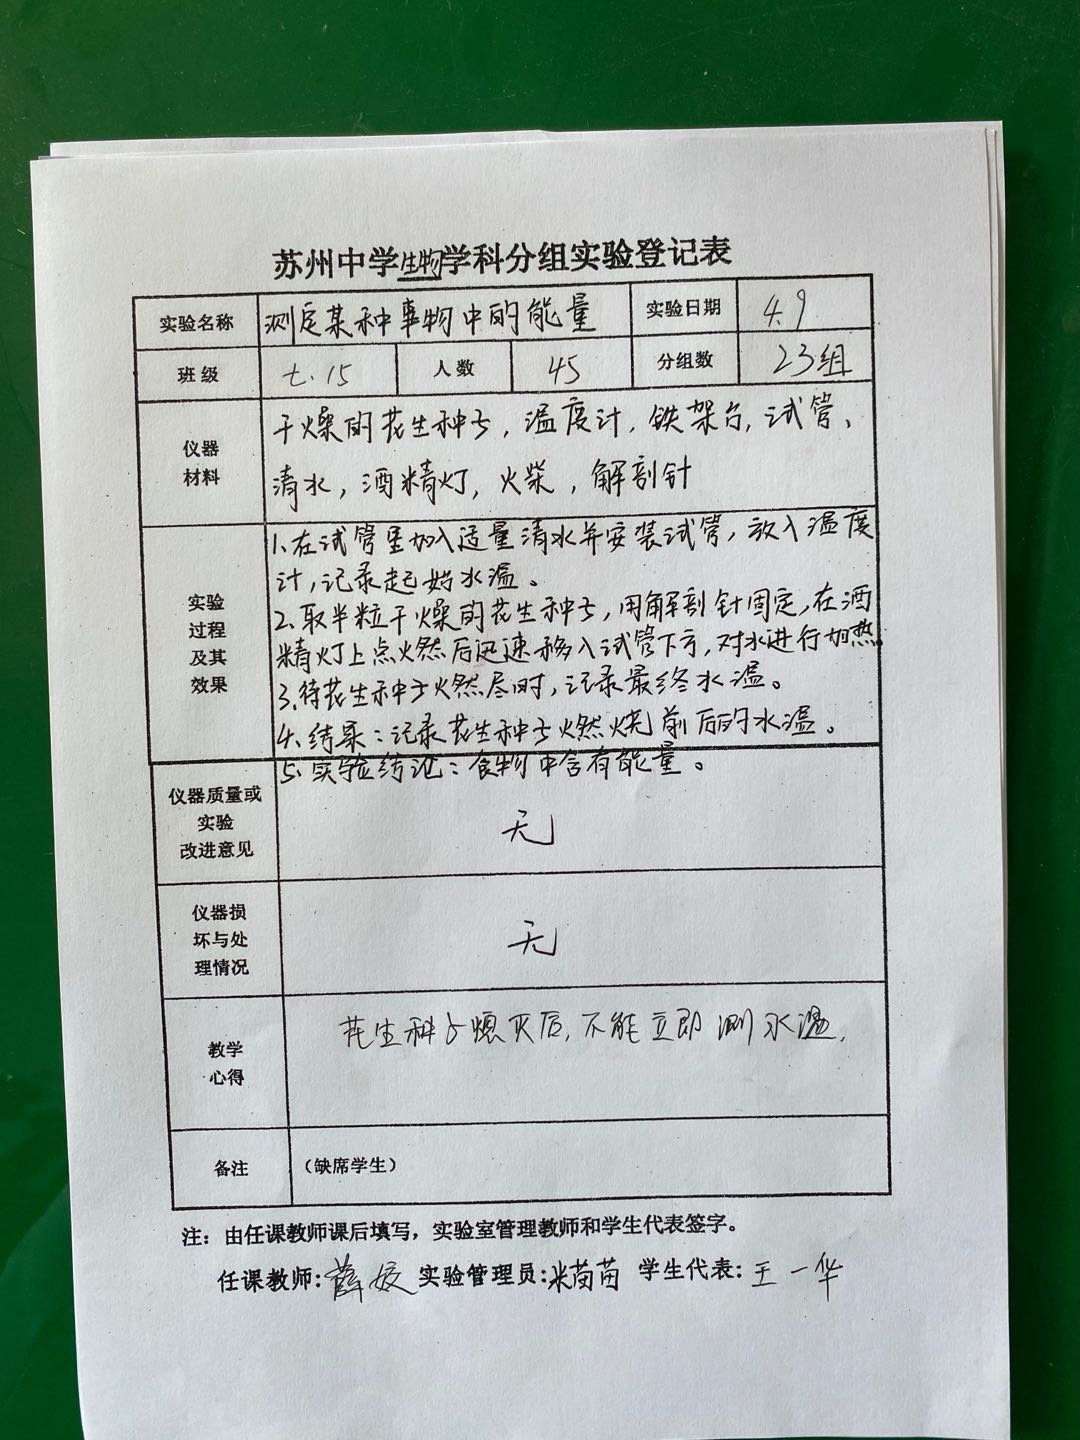 苏州中学生物学科分组实验登记表
实验名称 测定某种事物中的能量 实验日期 4.9
班级 七.15 人数 45 分组数 23组
仪器
材料
干燥的花生种子，温度计，铁架台，试管、
清水，酒精灯，火柴，解剖针
实验
过程
及其
效果
1.在试管里加入适量清水并安装试管，放入温度
计，记录起始水温。
2.取半粒干燥的花生种子，用解剖针固定，在酒
精灯上点火然后迅速移入试管下方，对水进行加热。
3.待花生种子火燃尽时，记录最终水温。
4.结果：记录花生种子火燃烧前后的水温。
5.实验结论：食物中含有能量。
仪器质量或
实验
改进意见
无
仪器损
坏与处
理情况
无
教学
心得
花生种子熄灭后，不能立即测水温.
备注 （缺席学生）
注：由任课教师课后填写，实验室管理教师和学生代表签字。
任课教师:薛姣 实验管理员:米苗苗 学生代表:王一华